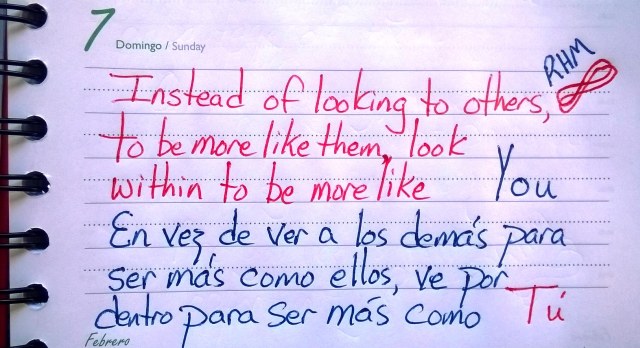 7 Domingo / Sunday
RHM
Instead of looking to others,
to be more like them, look
within to be more like You
En vez de ver a los demás para
ser más como ellos, ve por
dentro para ser más como Tú
Febrero